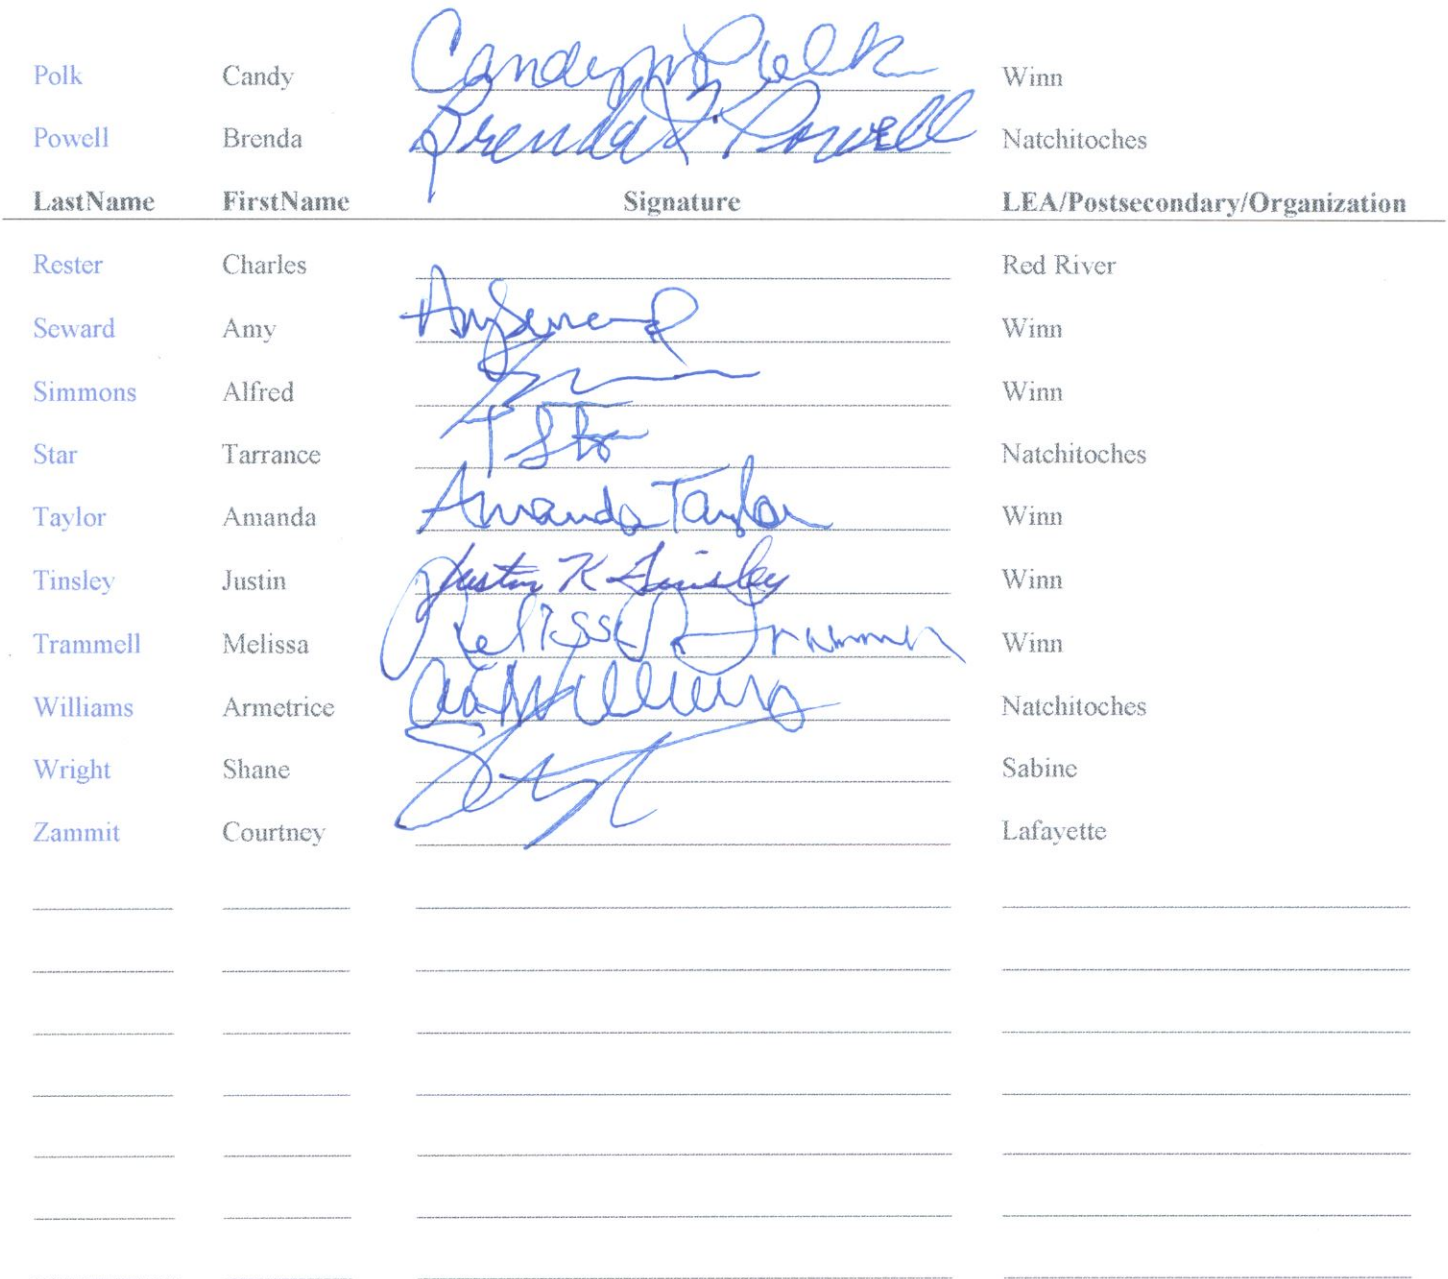 Polk Candy Candy M Polk Winn
Powell Brenda Brenda Powell Natchitoches
LastName FirstName Signature LEA/Postsecondary/Organization
Rester Charles Red River
Seward Amy Amy Seward Winn
Simmons Alfred Winn
Star Tarrance Natchitoches
Taylor Amanda Amanda Taylor Winn
Tinsley Justin Justin K Tinsley Winn
Trammell Melissa Melissa Winn
Williams Armetrice Williams Natchitoches
Wright Shane Sabine
Zammit Courtney Lafayette